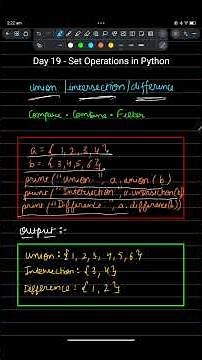 2:22 am
Day 19 - Set Operations in Python
union / intersection / difference
Compare • Combine • Filter
a = { 1, 2, 3, 4 }
b = { 3, 4, 5, 6 }
print ( "Union : " , a. union ( b )
print ( "Intersection : " , a. intersection ( b )
print ( "Difference : " , a. difference ( b ) )
Output :-
Union : { 1, 2, 3, 4, 5, 6 }
Intersection : { 3, 4 }
Difference : { 1, 2 }